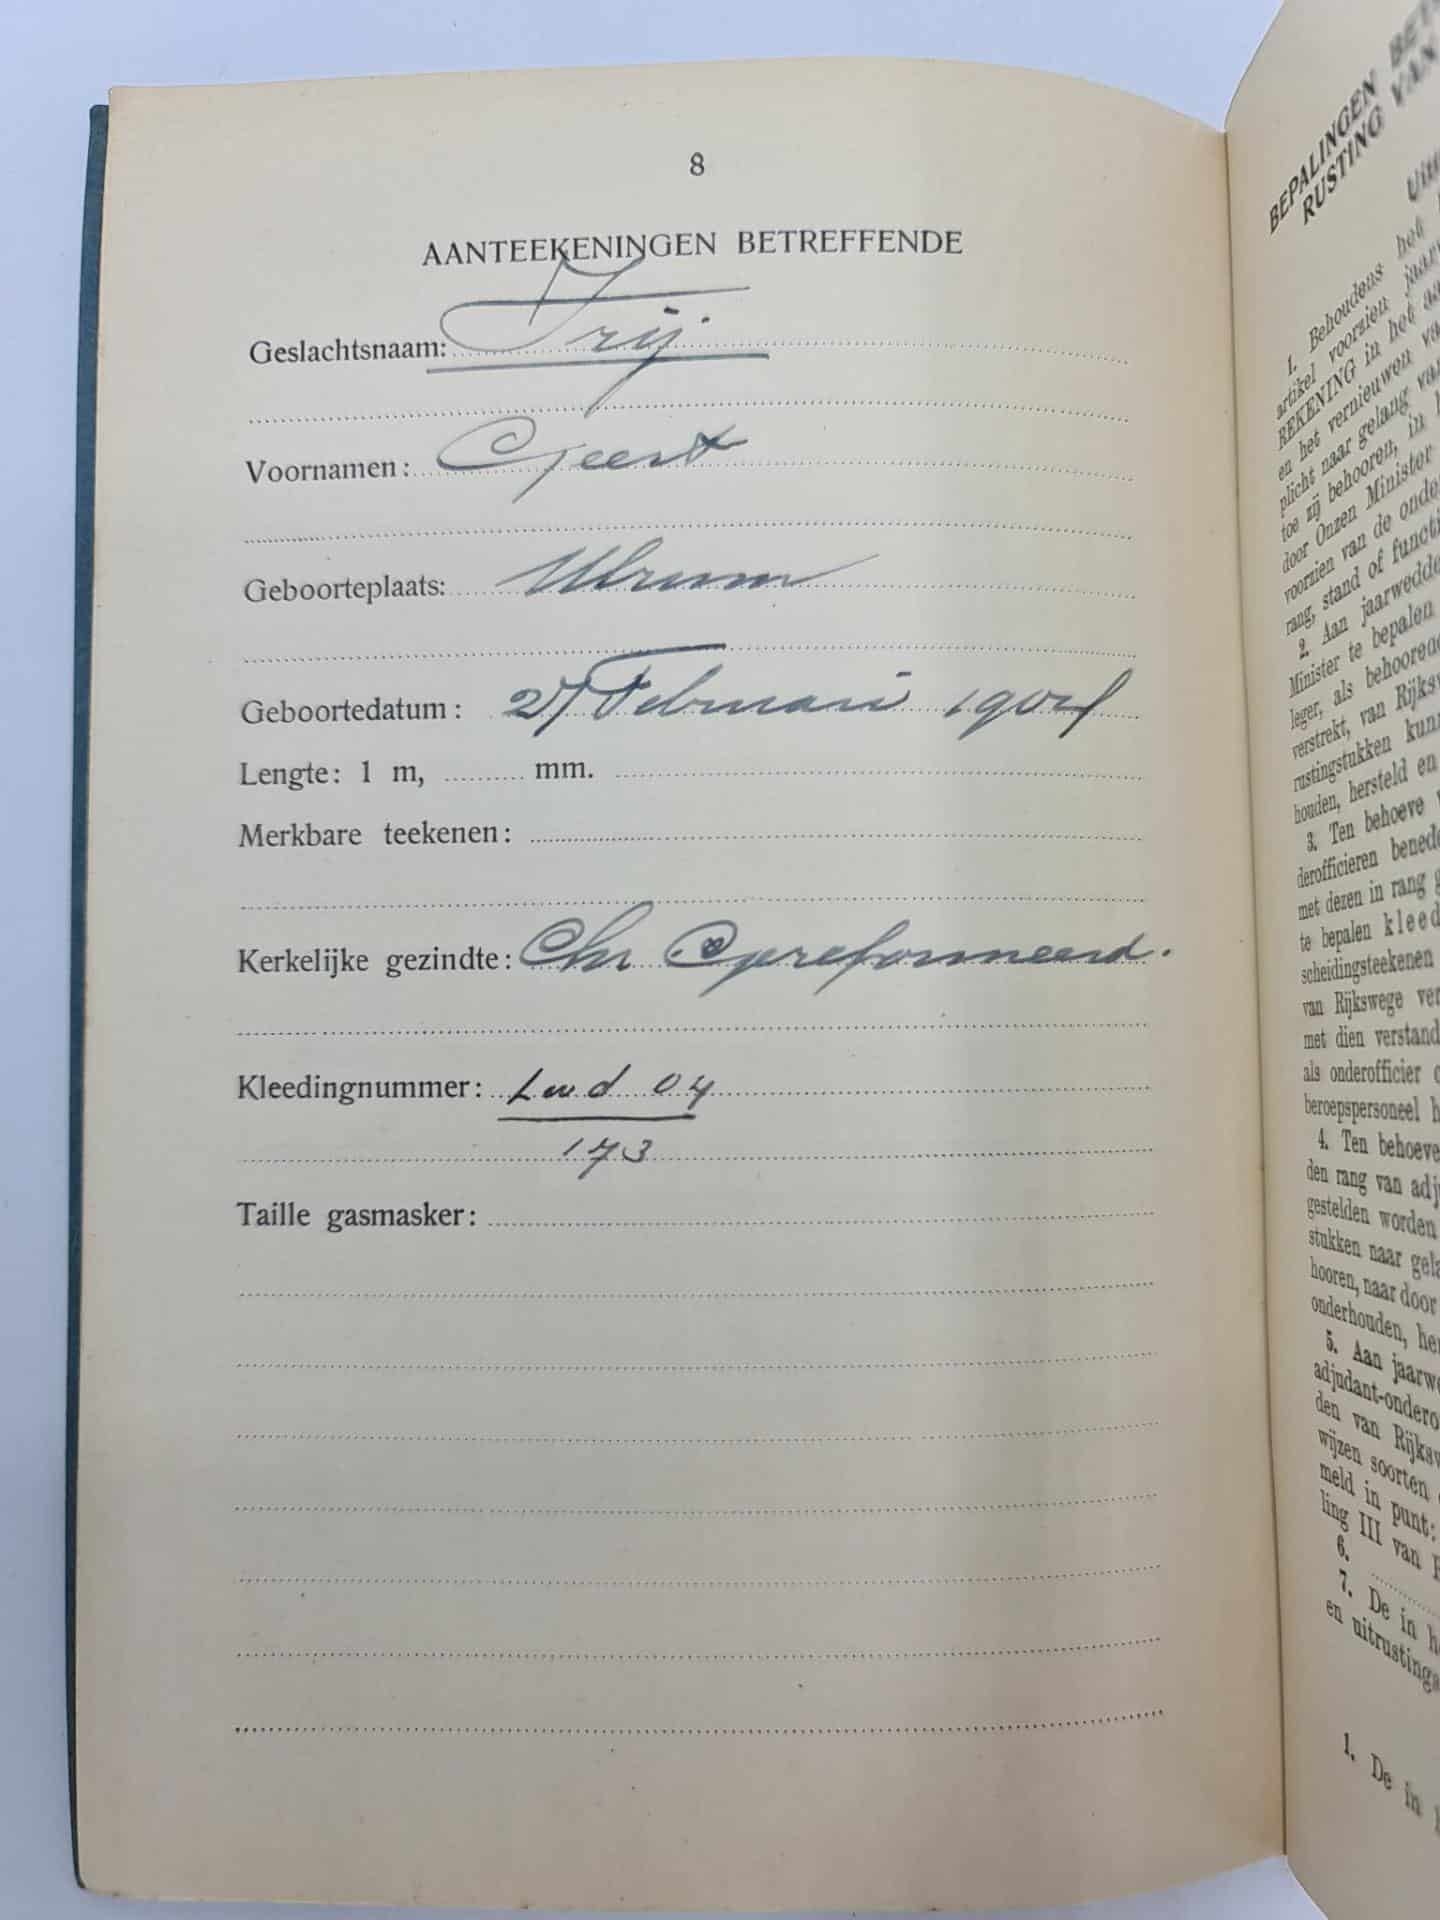 8
AANTEEKENINGEN BETREFFENDE
Geslachtsnaam: Frij
Voornamen: Geert
Geboorteplaats: Ulrum
Geboortedatum: 27 Februari 1904
Lengte: 1 m, .......... mm.
Merkbare teekenen:
Kerkelijke gezindte: Chr Gereformeerd.
Kleedingnummer: Lwd 04
173
Taille gasmasker:
BEPALINGEN
RUSTING VAN
1. Behoudens het
artikel voorzien
REKENING in het
en het vernieuwen
plicht naar gelang
toe zij behooren, in
door Onzen Minister
voorzien van de
rang, stand of
2. Aan
Minister te bepalen
leger, als
verstrekt, van
rustingstukken
houden, hersteld en
3. Ten behoeve
derofficieren
met dezen in rang
te bepalen
scheidingsteekenen
van Rijkswege
met dien
als onderofficier
beroepspersoneel
4. Ten behoeve
den rang van
gestelden worden
stukken naar
hooren, naar door
onderhouden,
5. Aan
adjudant-
den van
wijzen soorten
meld in punt:
ling III van
6.
7. De in
en
1. De in